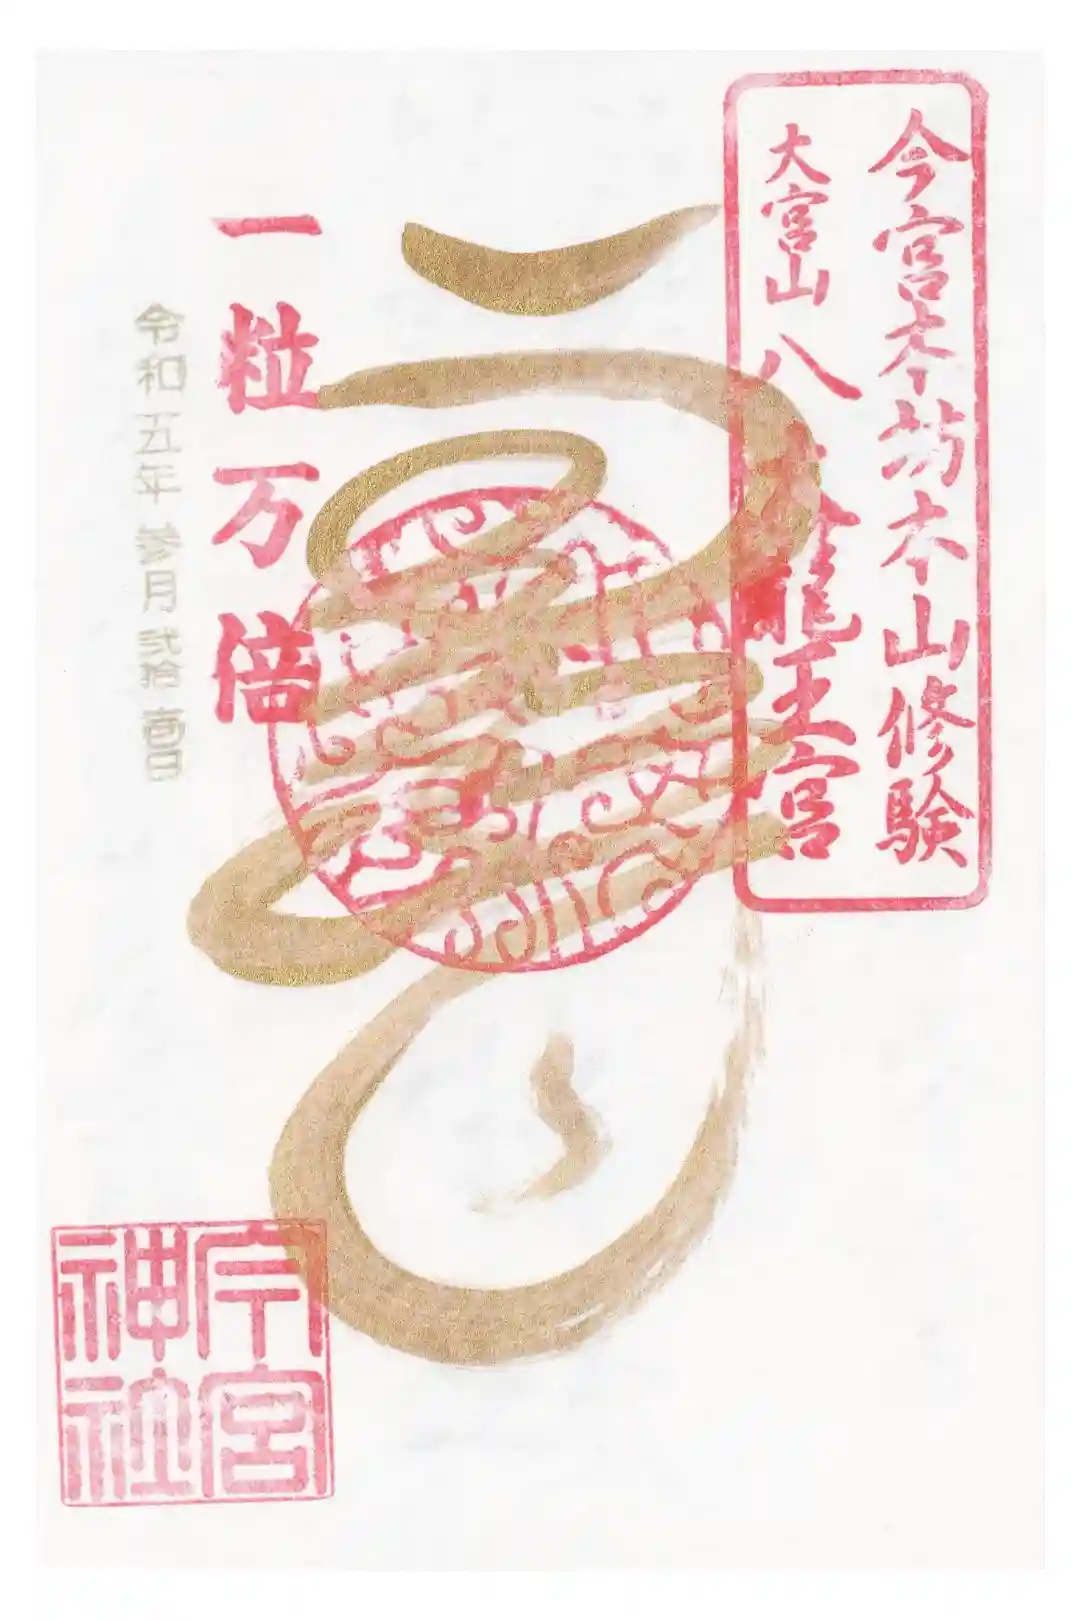 今宮本坊本山修験
大宮山 八大龍王宮
一粒万倍
令和五年参月弐拾壱日
今宮神社